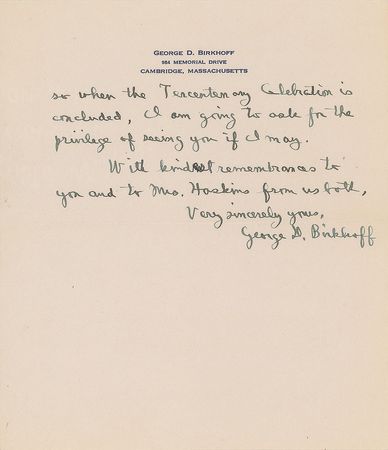 GEORGE D. BIRKHOFF
984 MEMORIAL DRIVE
CAMBRIDGE, MASSACHUSETTS
so when the Tercentenary Celebration is
concluded, I am going to ask for the
privilege of seeing you if I may.
With kindest remembrances to
you and to Mrs. Haskins from us both,
Very sincerely yours,
George D. Birkhoff